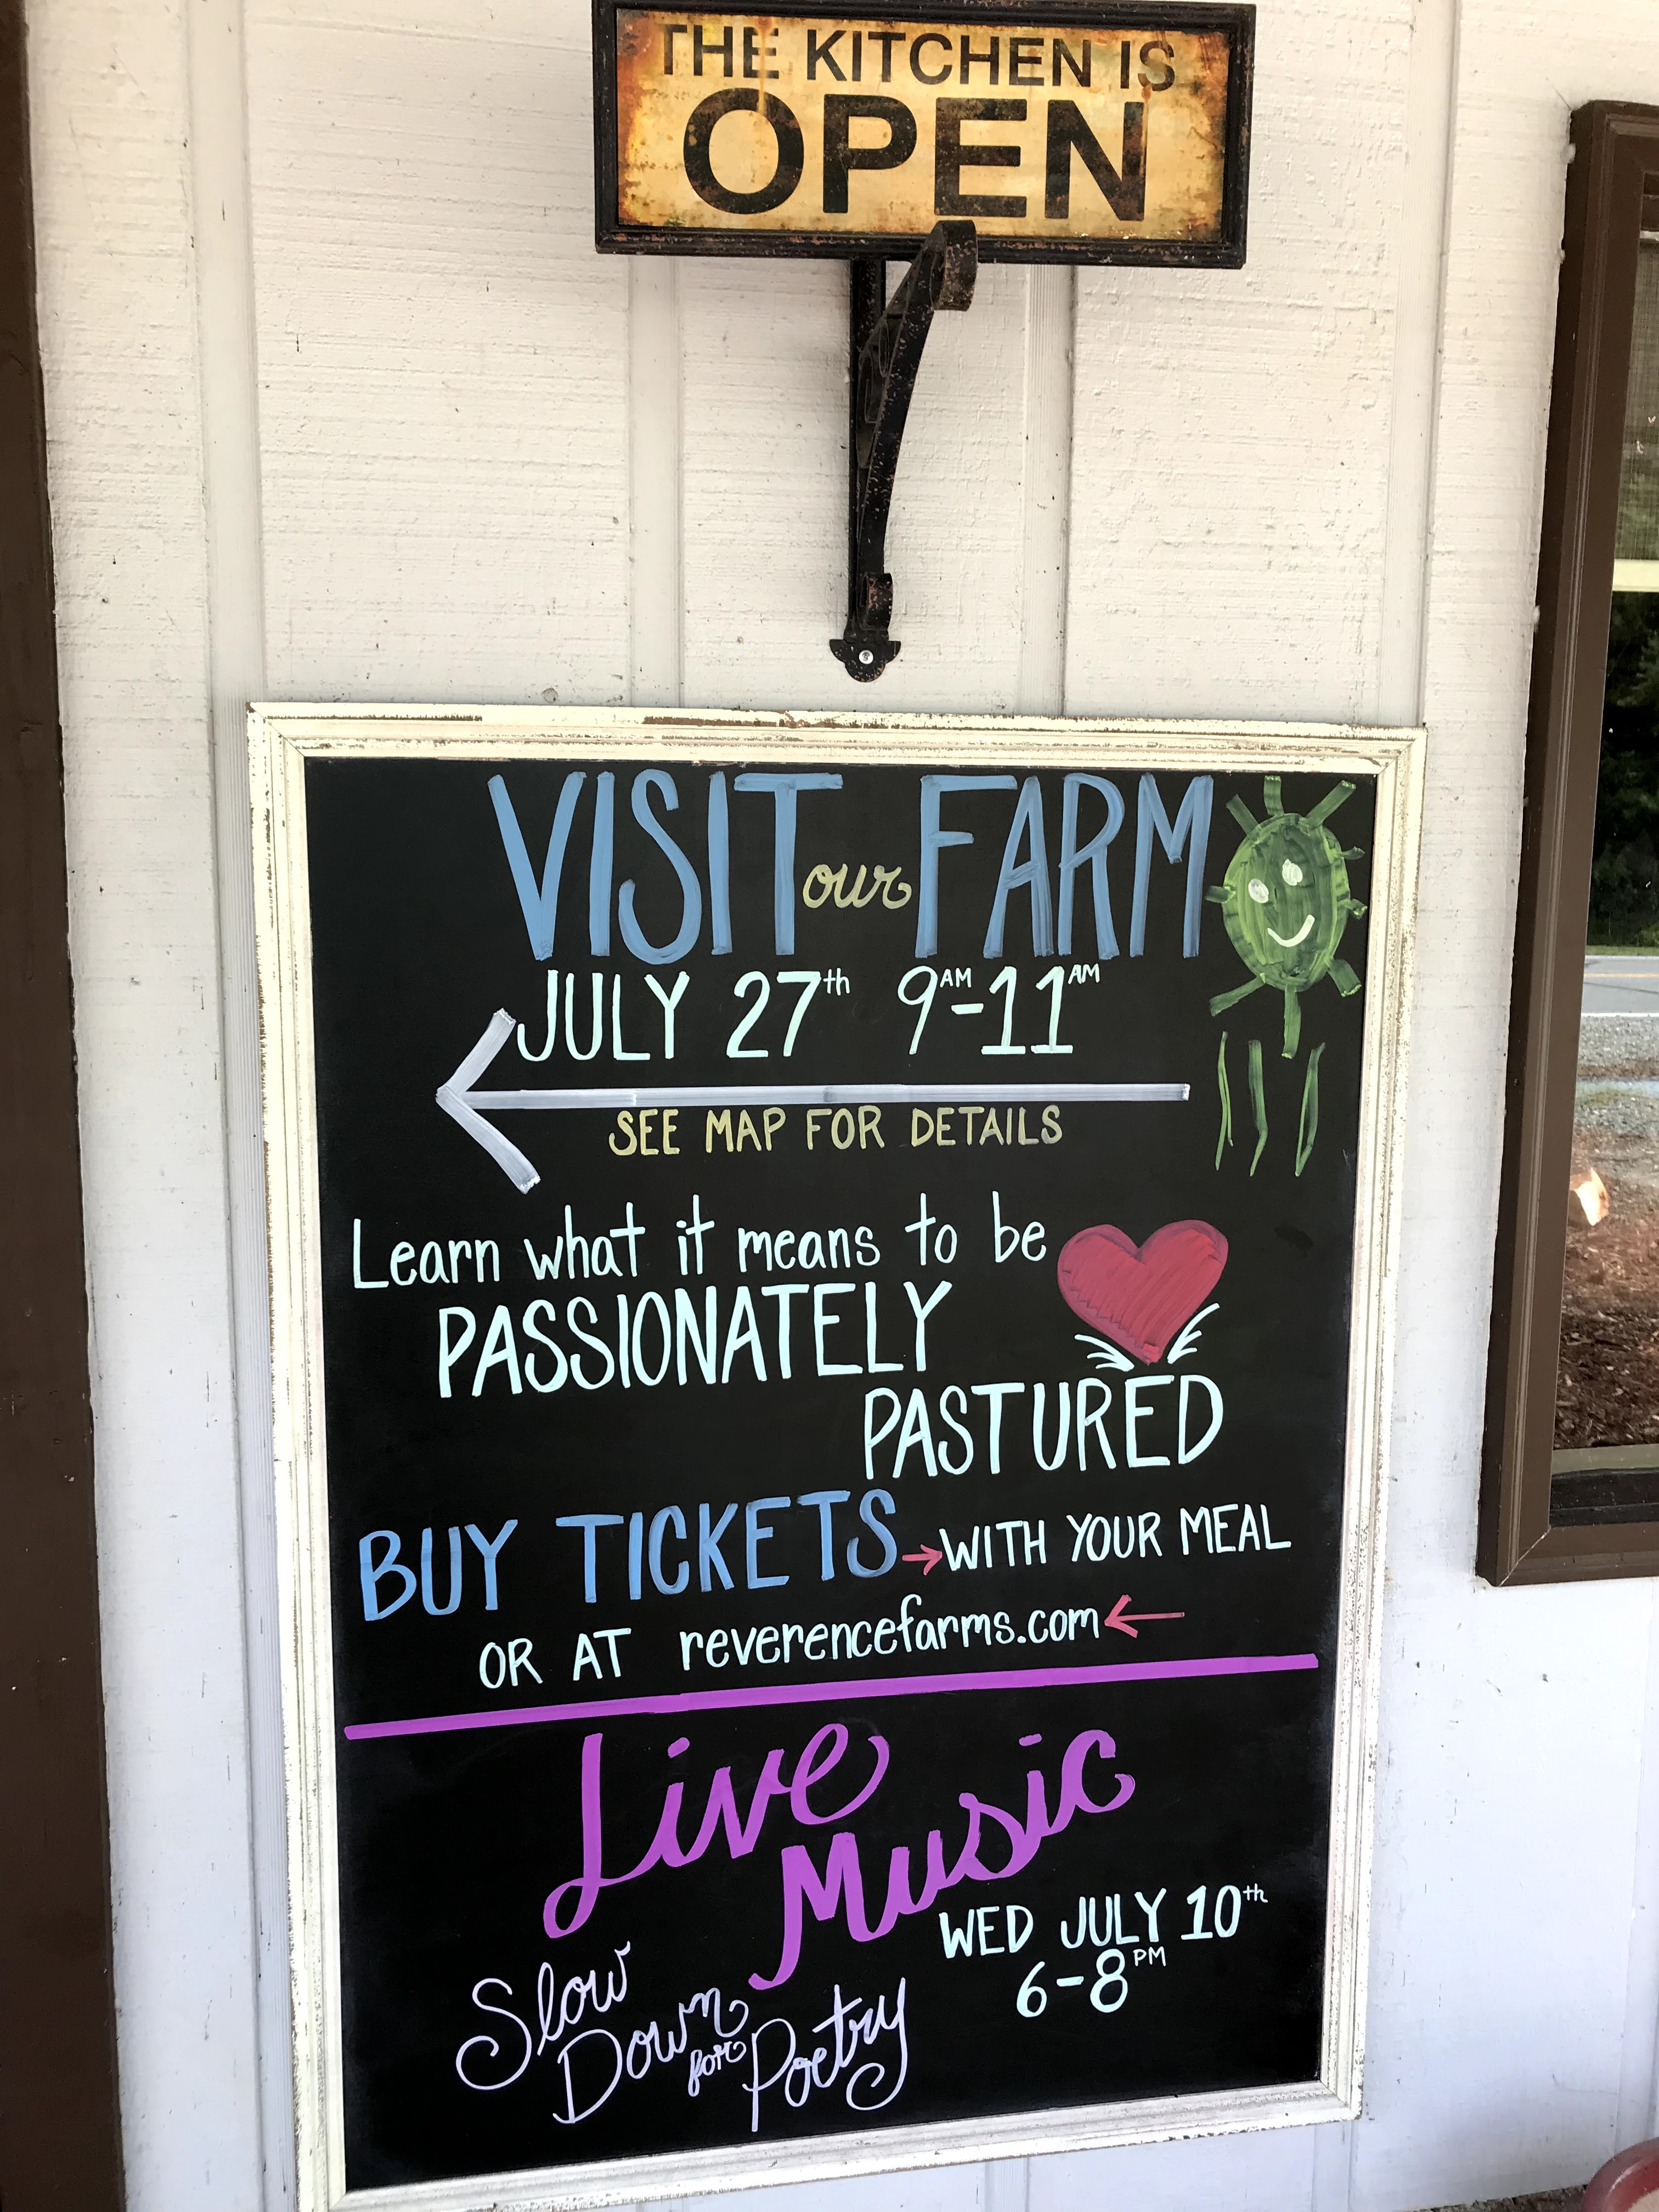 THE KITCHEN IS
OPEN
VISIT our FARM
JULY 27th 9AM-11AM
SEE MAP FOR DETAILS
Learn what it means to be
PASSIONATELY
PASTURED
BUY TICKETS → WITH YOUR MEAL
OR AT reverencefarms.com ←
Live
Music
WED JULY 10th
6-8PM
Slow
Down
for Poetry